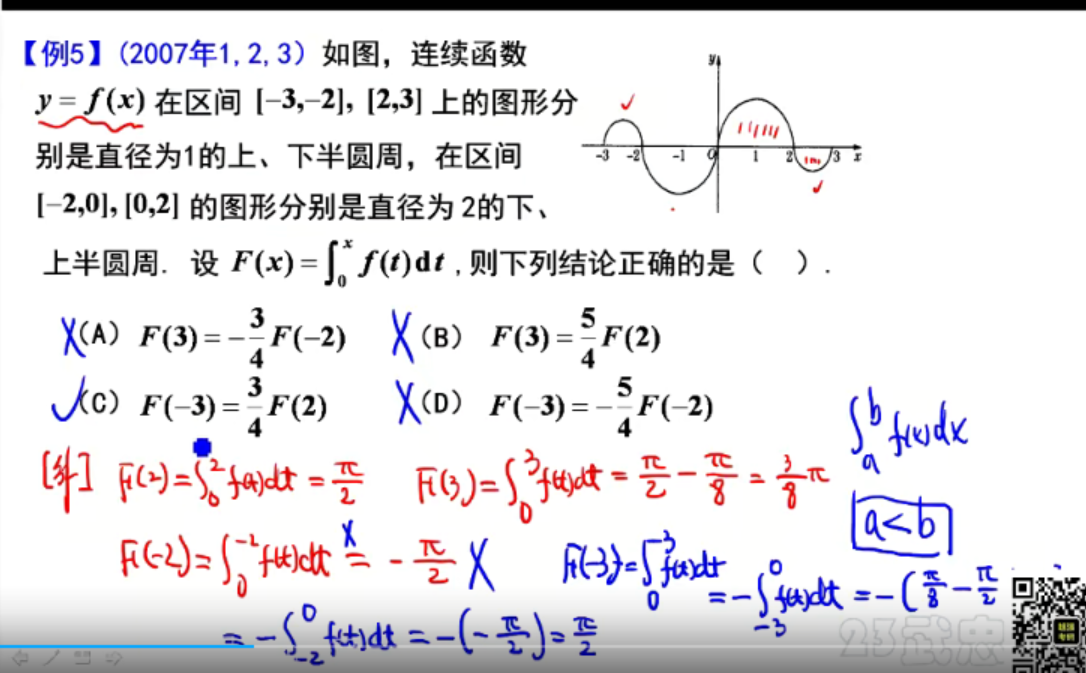 【例5】(2007年1,2,3) 如图，连续函数
y = f(x) 在区间 [-3,-2], [2,3] 上的图形分
别是直径为1的上、下半圆周，在区间
[-2,0], [0,2] 的图形分别是直径为 2的下、
上半圆周. 设 F(x) = ∫₀ˣ f(t)dt ,则下列结论正确的是（ ）.
y
-3 -2 -1 O 1 2 3 x
X (A) F(3) = -3/4 F(-2) X (B) F(3) = 5/4 F(2)
✓ (C) F(-3) = 3/4 F(2) X (D) F(-3) = -5/4 F(-2)
∫ₐᵇ f(x)dx
a<b
[解] F(2) = ∫₀² f(t)dt = π/2 F(3) = ∫₀³ f(t)dt = π/2 - π/8 = 3/8 π
F(-2) = ∫₀⁻² f(t)dt = - π/2 X F(-3) = ∫₀⁻³ f(t)dt
= -∫₋₃⁰ f(t)dt = -(π/8 - π/2
= -∫₋₂⁰ f(t)dt = -(-π/2) = π/2
23武忠